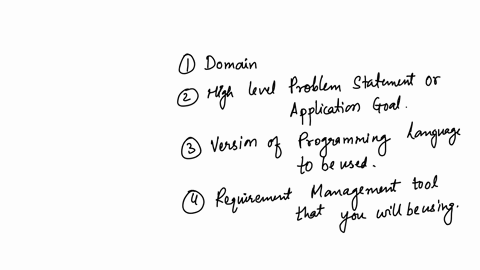 ① Domain
② High level Problem Statement or
Application Goal.
③ Version of Programming Language
to be used.
④ Requirement Management tool
that you will be using.